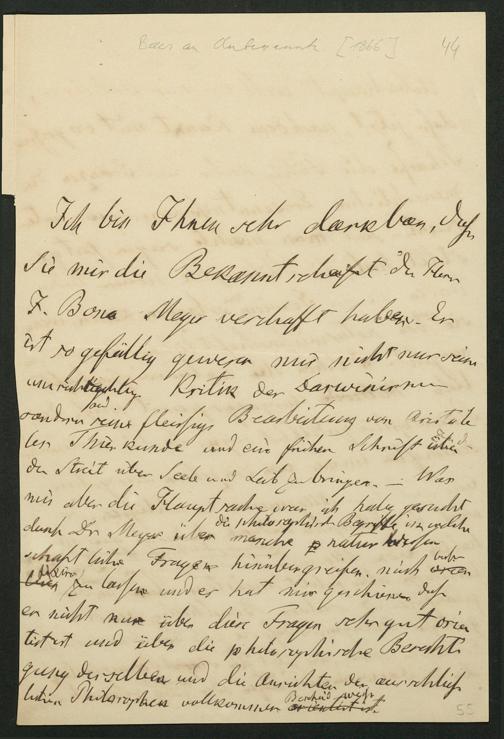 Baer an Unbekannt [1866] 44
Ich bin Ihnen sehr dankbar, daß
Sie mir die Bekanntschaft des Herrn
J. Bona Meyer verschafft haben. Er
ist so gefällig gewesen mir nicht nur seine
Kritik der Darwinismus
sondern seine fleissige Bearbeitung von Aristote
les Thierkunde und eine frühere Schrift über
den Streit über Seele und Leib zu bringen. — Was
mir aber die Hauptsache war, ich habe gesucht
die philosophischen Begriffe
durch Dr Meyer über manche natur wissen
schaftliche Fragen hinübergreifen, mich
zu lassen und er hat mir geschienen, daß
er nicht nur über diese Fragen sehr gut orien
tirt ist und über die philosophische Berechti
gung derselben und die Ansichten der ausschließ
lichen Philosophen vollkommen Bescheid weiß
orientirt ist.
55